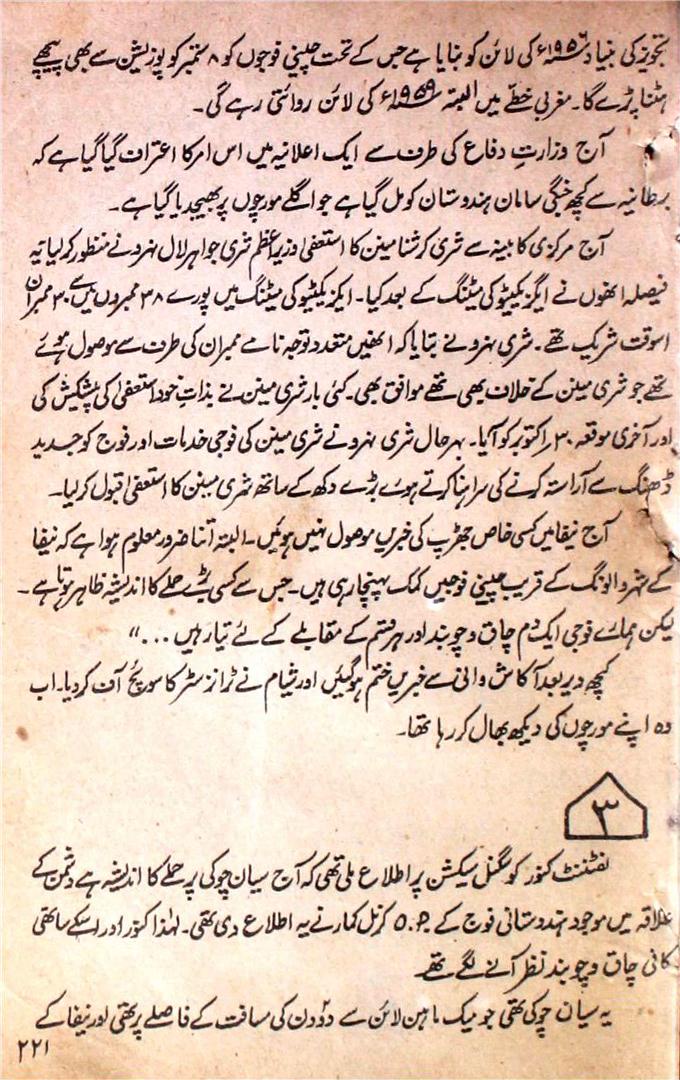 تجویز کی بنیاد ۱۹۵۶ء کی لائن کو بنایا ہے جس کے تحت چینی فوجوں کو ۸ ستمبر کو پوزیشن سے بھی پیچھے
ہٹنا پڑے گا۔ مغربی خطے میں البتہ ۱۹۵۹ء کی لائن روائتی رہے گی۔
آج وزارتِ دفاع کی طرف سے ایک اعلانیہ میں اس امر کا اعتراف گیا گیا ہے کہ
برطانیہ سے کچھ جنگی سامان ہندوستان کو مل گیا ہے جو اگلے مورچوں پر بھیجدیا گیا ہے۔
آج مرکزی کابینہ سے شری کرشنا مینن کا استعفیٰ وزیر اعظم شری جواہر لال نہرو نے منظور کر لیا یہ
فیصلہ انھوں نے ایگزیکیٹو کی میٹنگ کے بعد کیا۔ ایگزیکیٹو کی میٹنگ میں پورے ۳۸ ممبروں میں سے ۳۰ ممبران
اسوقت شریک تھے۔ شری نہرو نے بتایا کہ انھیں متعدد توجہ نامے ممبران کی طرف سے موصول ہوئے
تھے جو شری مینن کے خلاف بھی تھے موافق بھی۔ کئی بار شری مینن نے بذاتِ خود استعفیٰ کی پیشکش کی
اور آخری موقعہ ۳۰؍اکتوبر کو آیا۔ بہر حال شری نہرو نے شری مینن کی فوجی خدمات اور فوج کو جدید
ڈھنگ سے آراستہ کرنے کی سراہنا کرتے ہوئے بڑے دکھ کے ساتھ شری مینن کا استعفیٰ قبول کر لیا۔
آج نیفا میں کسی خاص جھڑپ کی خبریں موصول نہیں ہوئیں۔ البتہ اتنا ضرور معلوم ہوا ہے کہ نیفا
کے شہر والونگ کے قریب چینی فوجیں کمک پہنچا رہی ہیں۔ جس سے کسی بڑے حملے کا اندیشہ ظاہر ہوتا ہے۔
لیکن ہمارے فوجی ایک دم چاق و چوبند اور ہر قسم کے مقابلے کے لئے تیار ہیں ...“
کچھ دیر بعد آکاش وانی سے خبریں ختم ہو گئیں اور شیام نے ٹرانزسٹر کا سوئچ آف کر دیا۔ اب
وہ اپنے مورچوں کی دیکھ بھال کر رہا تھا۔
۳
لفٹننٹ کنور کو سگنل سیکشن پر اطلاع ملی تھی کہ آج سیان چوکی پر حملے کا اندیشہ ہے دشمن کے
علاقہ میں موجود ہندوستانی فوج کے O.P. کرنل کمار نے یہ اطلاع دی تھی۔ لہٰذا کنور اور اسکے ساتھی
کافی چاق و چوبند نظر آنے لگے تھے
یہ سیان چوکی تھی جو میک ماہن لائن سے دو دن کی مسافت کے فاصلے پر تھی اور نیفا کے
۲۲۱